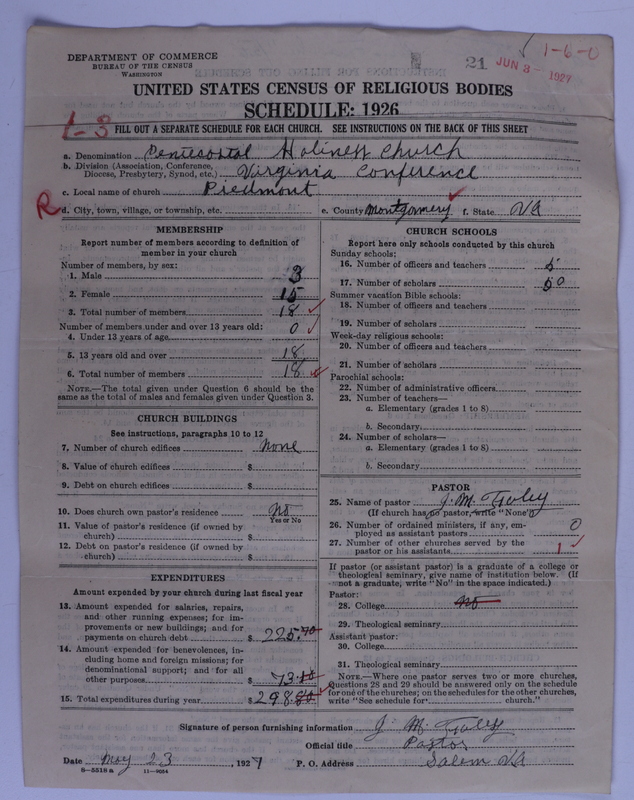 1-6-0
21 JUN 3 1927
DEPARTMENT OF COMMERCE
BUREAU OF THE CENSUS
WASHINGTON
UNITED STATES CENSUS OF RELIGIOUS BODIES
SCHEDULE: 1926
1-3
FILL OUT A SEPARATE SCHEDULE FOR EACH CHURCH. SEE INSTRUCTIONS ON THE BACK OF THIS SHEET
a. Denomination Pentecostal Holiness Church
b. Division (Association, Conference,
Diocese, Presbytery, Synod, etc.) Virginia Conference
c. Local name of church Piedmont
R
d. City, town, village, or township, etc. e. County Montgomery f. State Va
MEMBERSHIP
Report number of members according to definition of
member in your church
Number of members, by sex:
1. Male 3
2. Female 15
3. Total number of members 18
Number of members under and over 13 years old:
4. Under 13 years of age 0
5. 13 years old and over 18
6. Total number of members 18
NOTE.—The total given under Question 6 should be
same as the total of males and females given under Question 3.
CHURCH BUILDINGS
See instructions, paragraphs 10 to 12
7. Number of church edifices none
8. Value of church edifices $
9. Debt on church edifices $
10. Does church own pastor's residence No
Yes or No
11. Value of pastor's residence (if owned by
church) $
12. Debt on pastor's residence (if owned by
church) $
EXPENDITURES
Amount expended by your church during last fiscal year
13. Amount expended for salaries, repairs,
and other running expenses; for im-
provements or new buildings; and for
payments on church debt $ 225.70
14. Amount expended for benevolences, in-
cluding home and foreign missions; for
denominational support; and for all
other purposes $ 73.10
15. Total expenditures during year $ 298.80
CHURCH SCHOOLS
Report here only schools conducted by this church
Sunday schools:
16. Number of officers and teachers 5
17. Number of scholars 50
Summer vacation Bible schools:
18. Number of officers and teachers
19. Number of scholars
Week-day religious schools:
20. Number of officers and teachers
21. Number of scholars
Parochial schools:
22. Number of administrative officers
23. Number of teachers—
a. Elementary (grades 1 to 8)
b. Secondary
24. Number of scholars—
a. Elementary (grades 1 to 8)
b. Secondary
PASTOR
25. Name of pastor J. M. Turley
(If church has no pastor, write "None")
26. Number of ordained ministers, if any, em-
ployed as assistant pastors 0
27. Number of other churches served by the
pastor or his assistants 1
If pastor (or assistant pastor) is a graduate of a college or
theological seminary, give name of institution below. (If
not a graduate, write "No" in the space indicated.)
Pastor:
28. College No
29. Theological seminary
Assistant pastor:
30. College
31. Theological seminary
NOTE.—Where one pastor serves two or more churches,
Questions 28 and 29 should be answered only on the schedule
for one of the churches; on the schedules for the other churches,
write "See schedule for church."
Signature of person furnishing information J. M. Turley
Official title Pastor
Date May 23, 1927 P. O. Address Salem Va
8—5518 a 11—9064